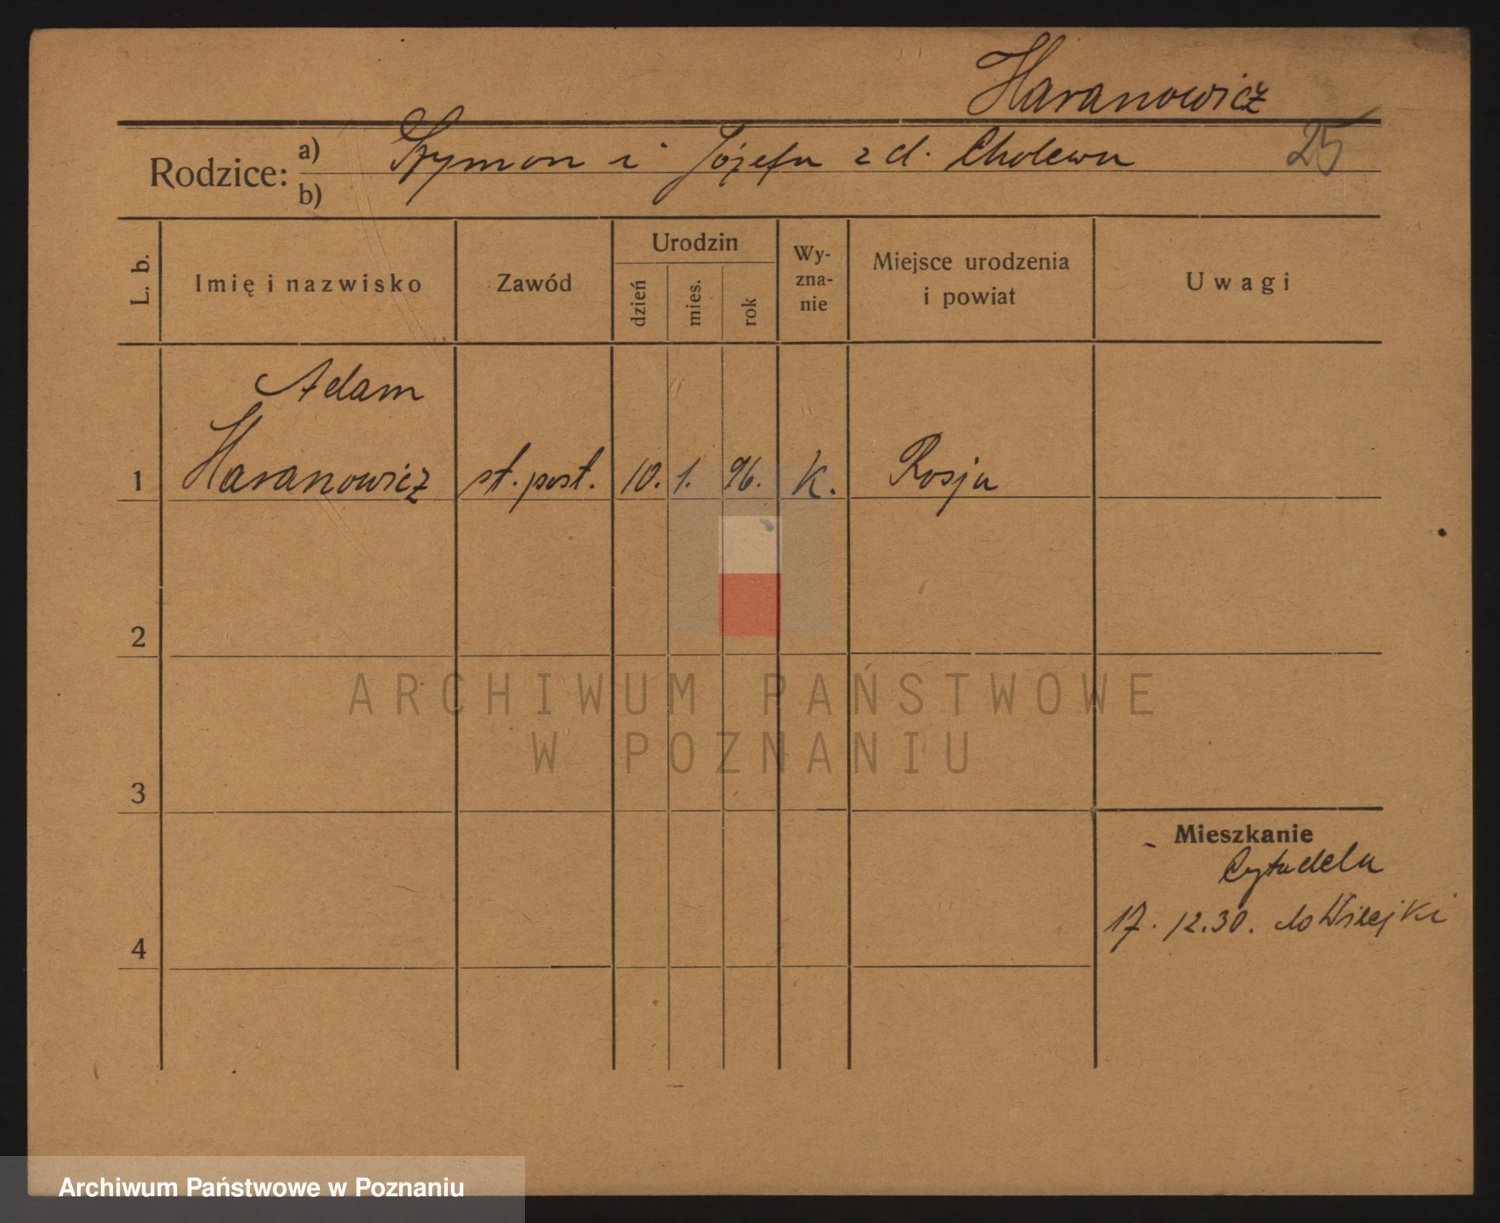 Haranowicz
25
Rodzice: a) Szymon i Józefa z d. Cholewa
b)
L. b.
Imię i nazwisko
Zawód
Urodzin
dzień
mies.
rok
Wy-
zna-
nie
Miejsce urodzenia
i powiat
Uwagi
Adam
1 Haranowicz st. post. 10. 1. 96. K. Rosja
2
ARCHIWUM PAŃSTWOWE
W POZNANIU
3
Mieszkanie
Cytadela
17. 12.30. do Wilejki
4
Archiwum Państwowe w Poznaniu